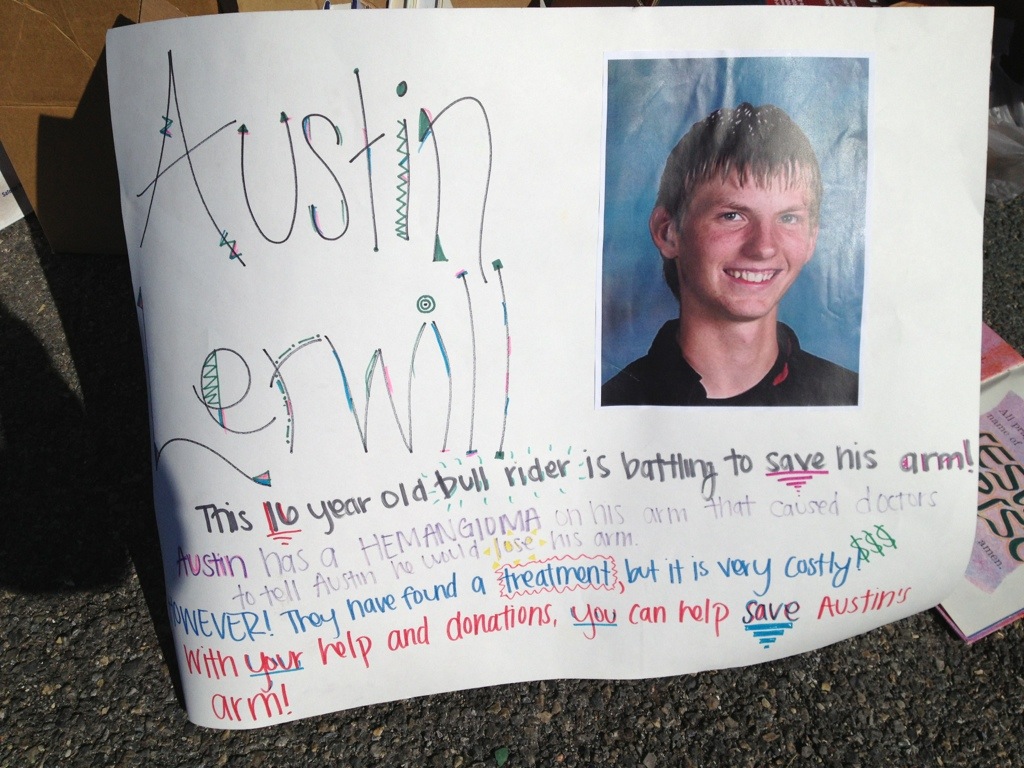 Austin
Lerwill
This 16 year old bull rider is battling to save his arm!
Austin has a HEMANGIOMA on his arm that caused doctors
to tell Austin he would lose his arm.
HOWEVER! They have found a treatment, but it is very costly! $$$
With your help and donations, you can help save Austin's
arm!
All pr
name of
amen.